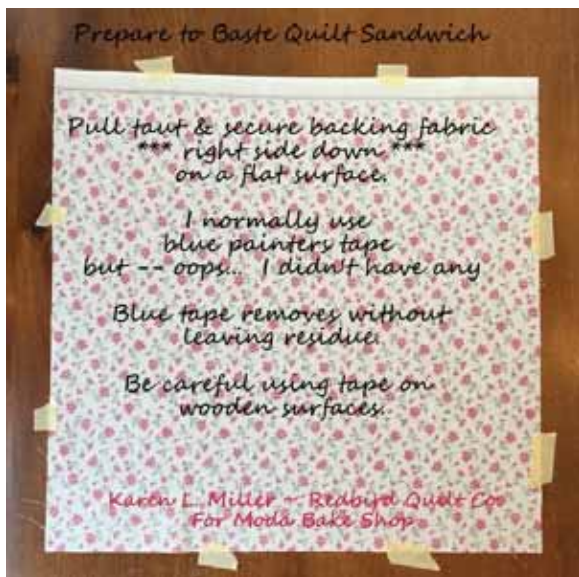 Prepare to Baste Quilt Sandwich
Pull taut & secure backing fabric
*** right side down ***
on a flat surface.
I normally use
blue painters tape
but -- oops... I didn't have any
Blue tape removes without
leaving residue.
Be careful using tape on
wooden surfaces.
Karen L. Miller ~ Redbird Quilt Co.
For Moda Bake Shop